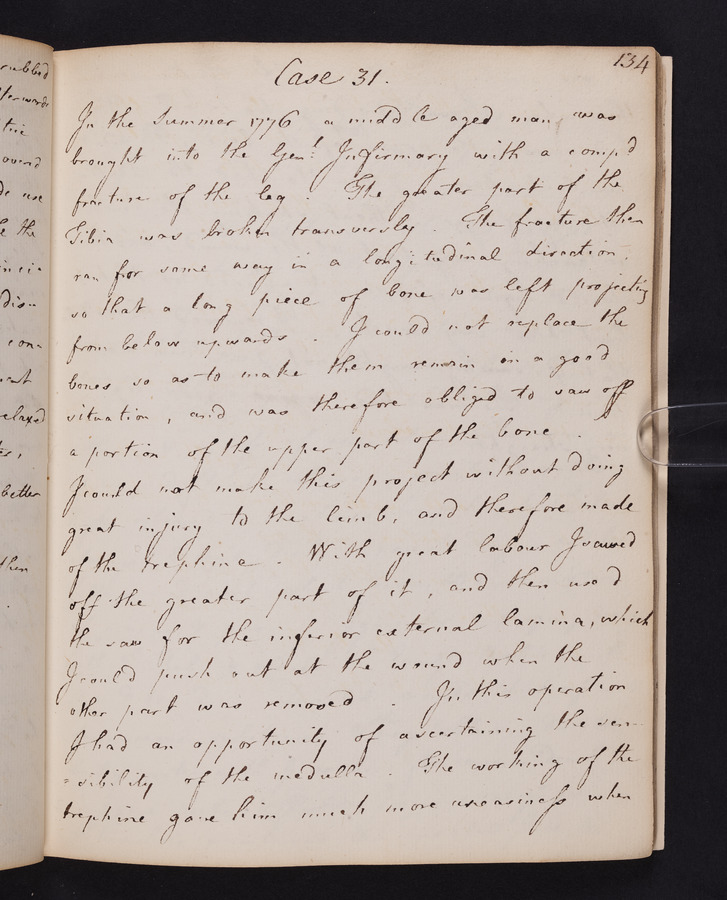 134
Case 31.
In the Summer 1776 a middle aged man was
brought into the Genl. Infirmary with a comp'd
fracture of the leg. The greater part of the
Tibia was broken transversly. The fracture then
ran for some way in a longitudinal direction,
so that a long piece of bone was left projecting
from below upwards. I could not replace the
bones so as to make them remain in a good
situation, and was therefore obliged to saw off
a portion of the upper part of the bone.
I could not make this project without doing
great injury to the limb, and therefore made
of the trephine. With great labour I sawed
off the greater part of it, and then us'd
the saw for the inferior external lamina, which
I could push out at the wound when the
other part was removed. In this operation
I had an opportunity of ascertaining the sen-
=sibility of the medulla. The working of the
trephine gave him much more uneasiness when
rubbed
terwards
the
use
the
dis=
con=
relaxed
better
then